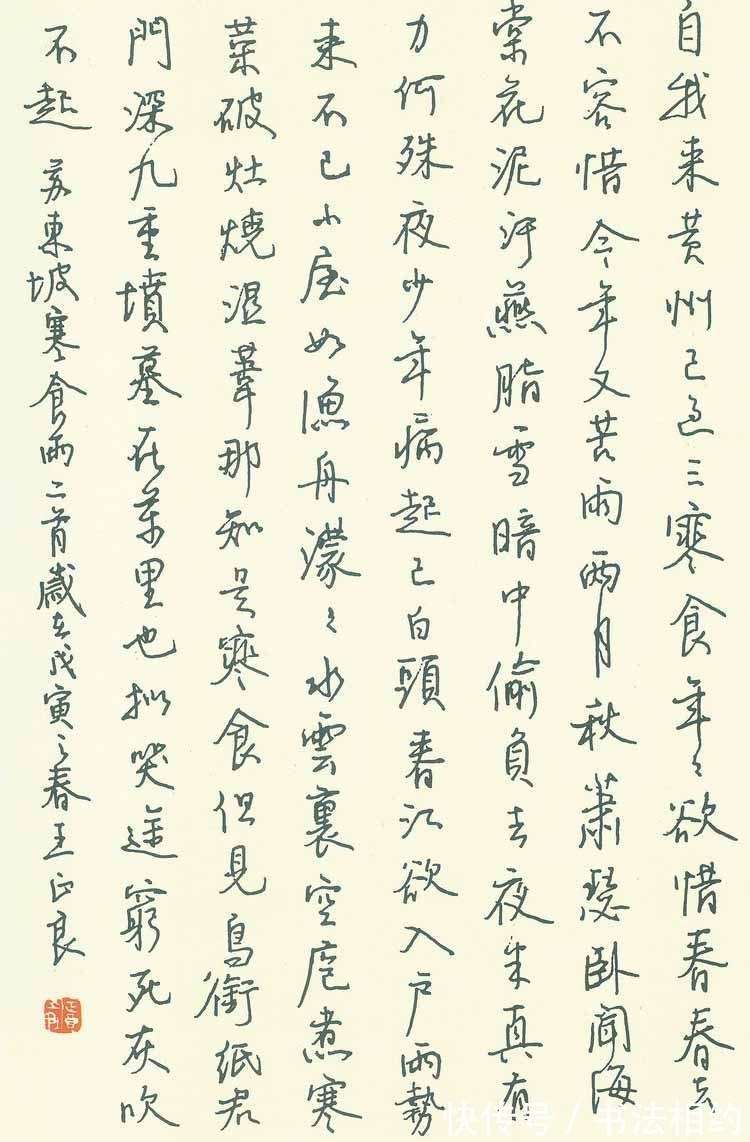 自我来黄州已過三寒食年々欲惜春春去
不容惜今年又苦雨兩月秋蕭瑟卧聞海
棠花泥汙燕脂雪暗中偷負去夜半真有
力何殊夜少年病起已白頭春江欲入户雨勢
来不已小屋如漁舟濛々水雲裏空庖煮寒
菜破灶燒濕葦那知是寒食但見烏銜紙君
門深九重墳墓在萬里也拟哭途窮死灰吹
不起 蘇東坡寒食雨二首歲在戊寅之春王正良
快传号 / 书法相约